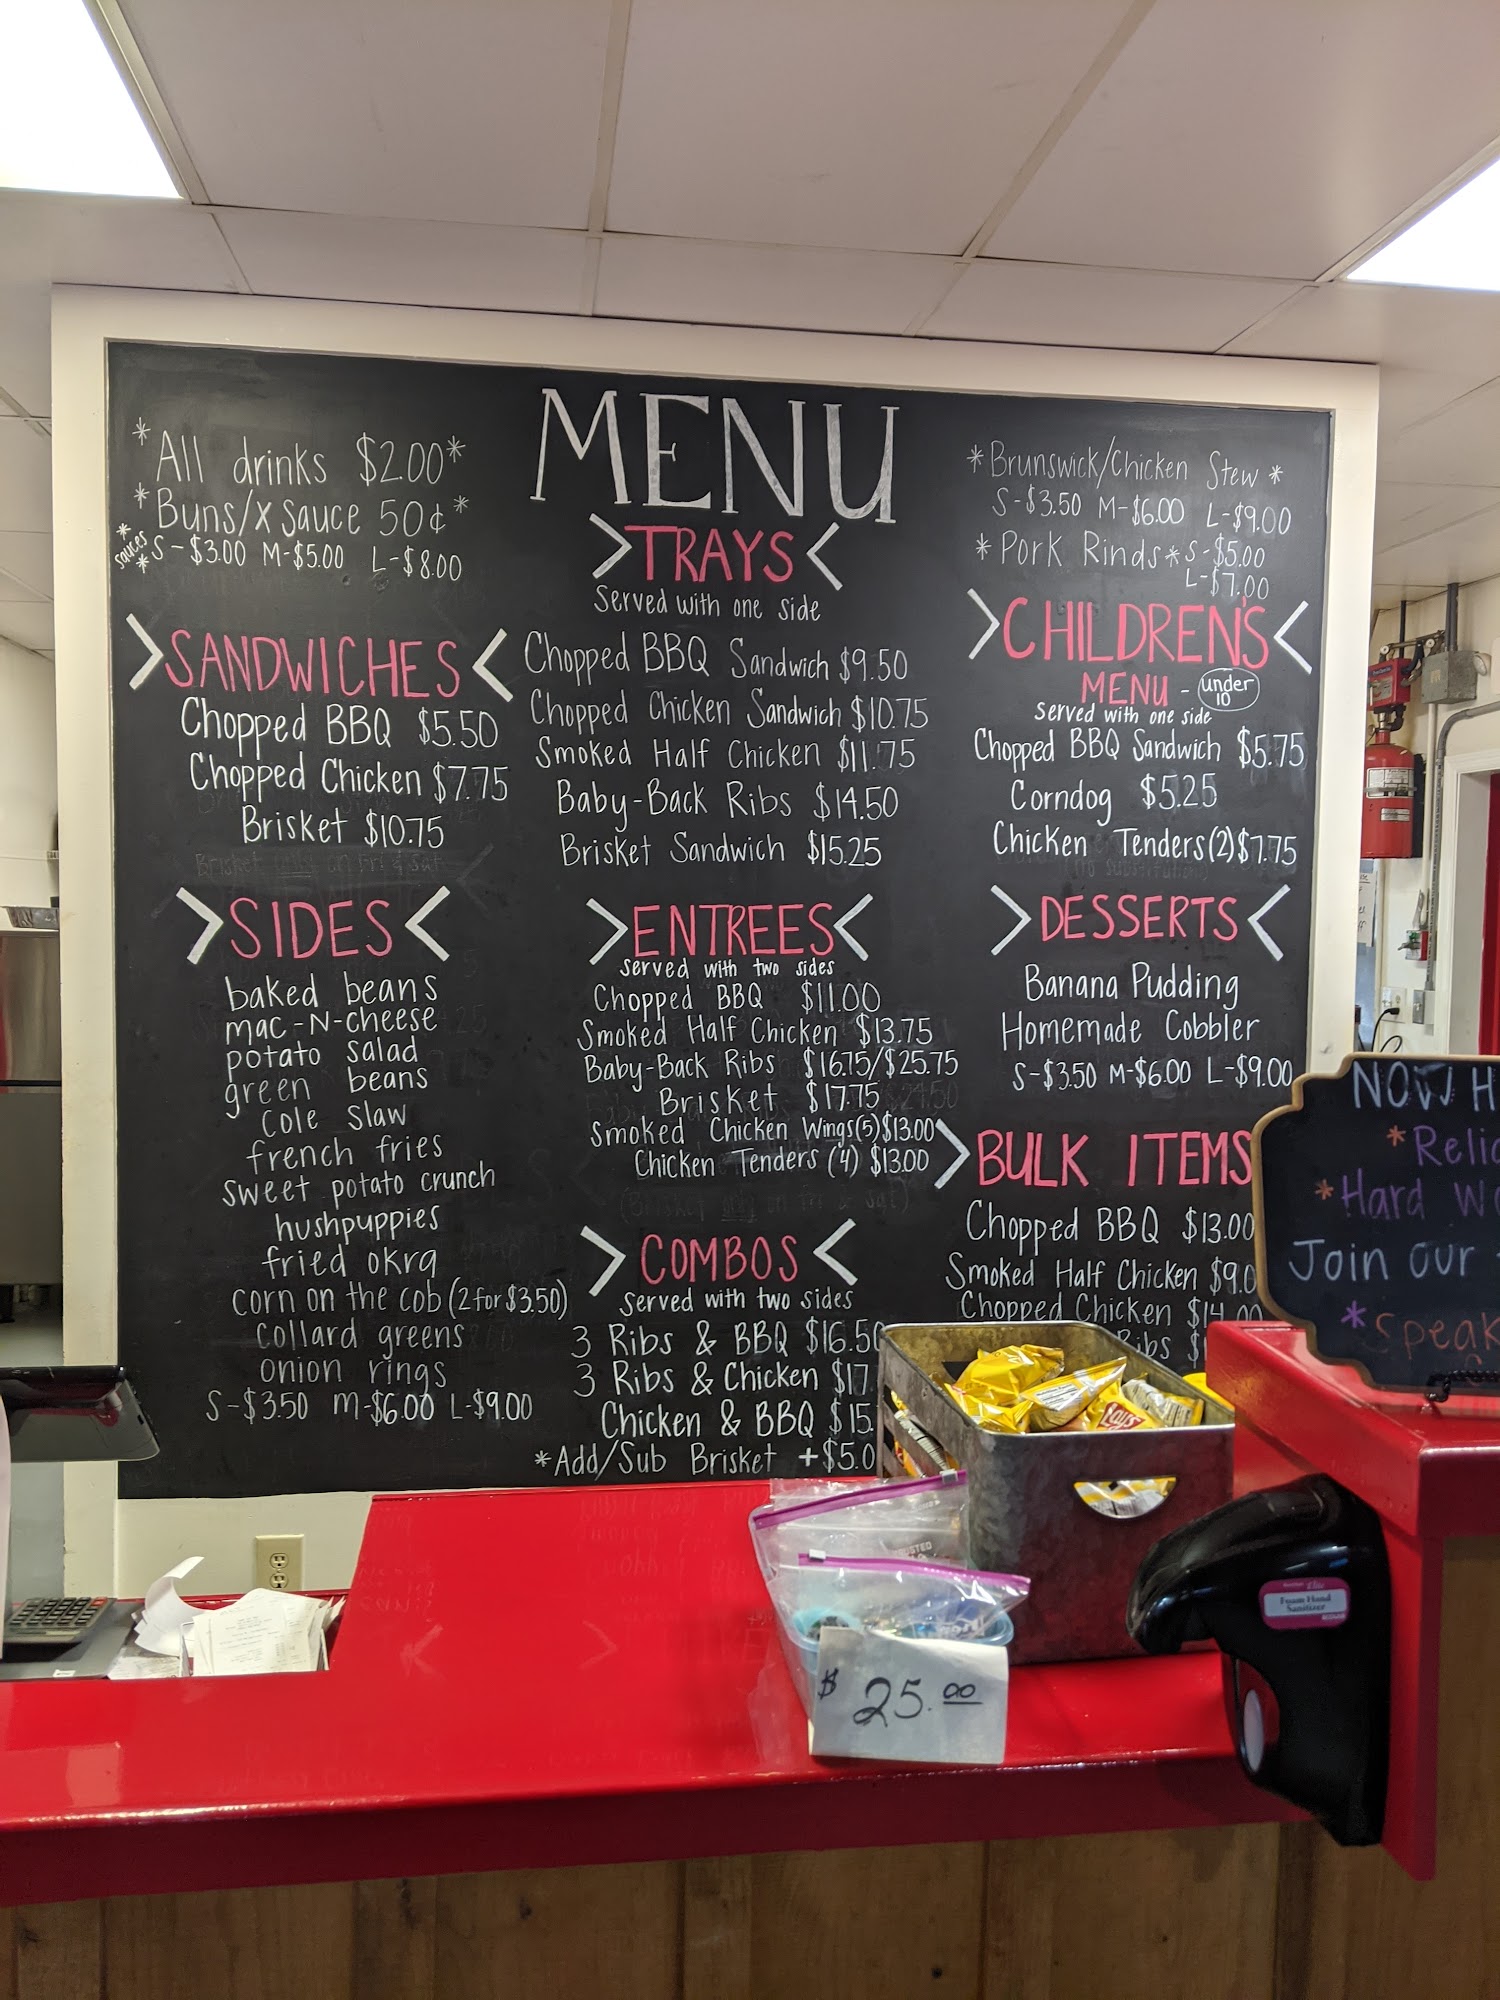 MENU
*All drinks $2.00*
*Buns/x sauce 50¢*
*sauces* S-$3.00 M-$5.00 L-$8.00
>SANDWICHES<
Chopped BBQ $5.50
Chopped Chicken $7.75
Brisket $10.75
Brisket only on Fri & Sat
>SIDES<
baked beans
mac-N-cheese
potato salad
green beans
cole slaw
french fries
sweet potato crunch
hushpuppies
fried okra
corn on the cob (2 for $3.50)
collard greens
onion rings
S-$3.50 M-$6.00 L-$9.00
>TRAYS<
Served with one side
Chopped BBQ Sandwich $9.50
Chopped Chicken Sandwich $10.75
Smoked Half Chicken $11.75
Baby-Back Ribs $14.50
Brisket Sandwich $15.25
>ENTREES<
Served with two sides
Chopped BBQ $11.00
Smoked Half Chicken $13.75
Baby-Back Ribs $16.75/$25.75
Brisket $17.75
Smoked Chicken Wings (5) $13.00
Chicken Tenders (4) $13.00
(Brisket only on Fri & Sat)
>COMBOS<
Served with two sides
3 Ribs & BBQ $16.50
3 Ribs & Chicken $17.
Chicken & BBQ $15.
*Add/Sub Brisket +$5.0
*Brunswick/Chicken Stew*
S-$3.50 M-$6.00 L-$9.00
*Pork Rinds* S-$5.00
L-$7.00
>CHILDREN'S<
MENU - under 10
Served with one side
Chopped BBQ Sandwich $5.75
Corndog $5.25
Chicken Tenders (2) $7.75
(no substitutions)
>DESSERTS<
Banana Pudding
Homemade Cobbler
S-$3.50 M-$6.00 L-$9.00
>BULK ITEMS
Chopped BBQ $13.00
Smoked Half Chicken $9.0
Chopped Chicken $14.00
Ribs $1
NOW H
*Relia
*Hard Wo
Join our
*Speak
Lay's
Foam Hand
Sanitizer
$25.00